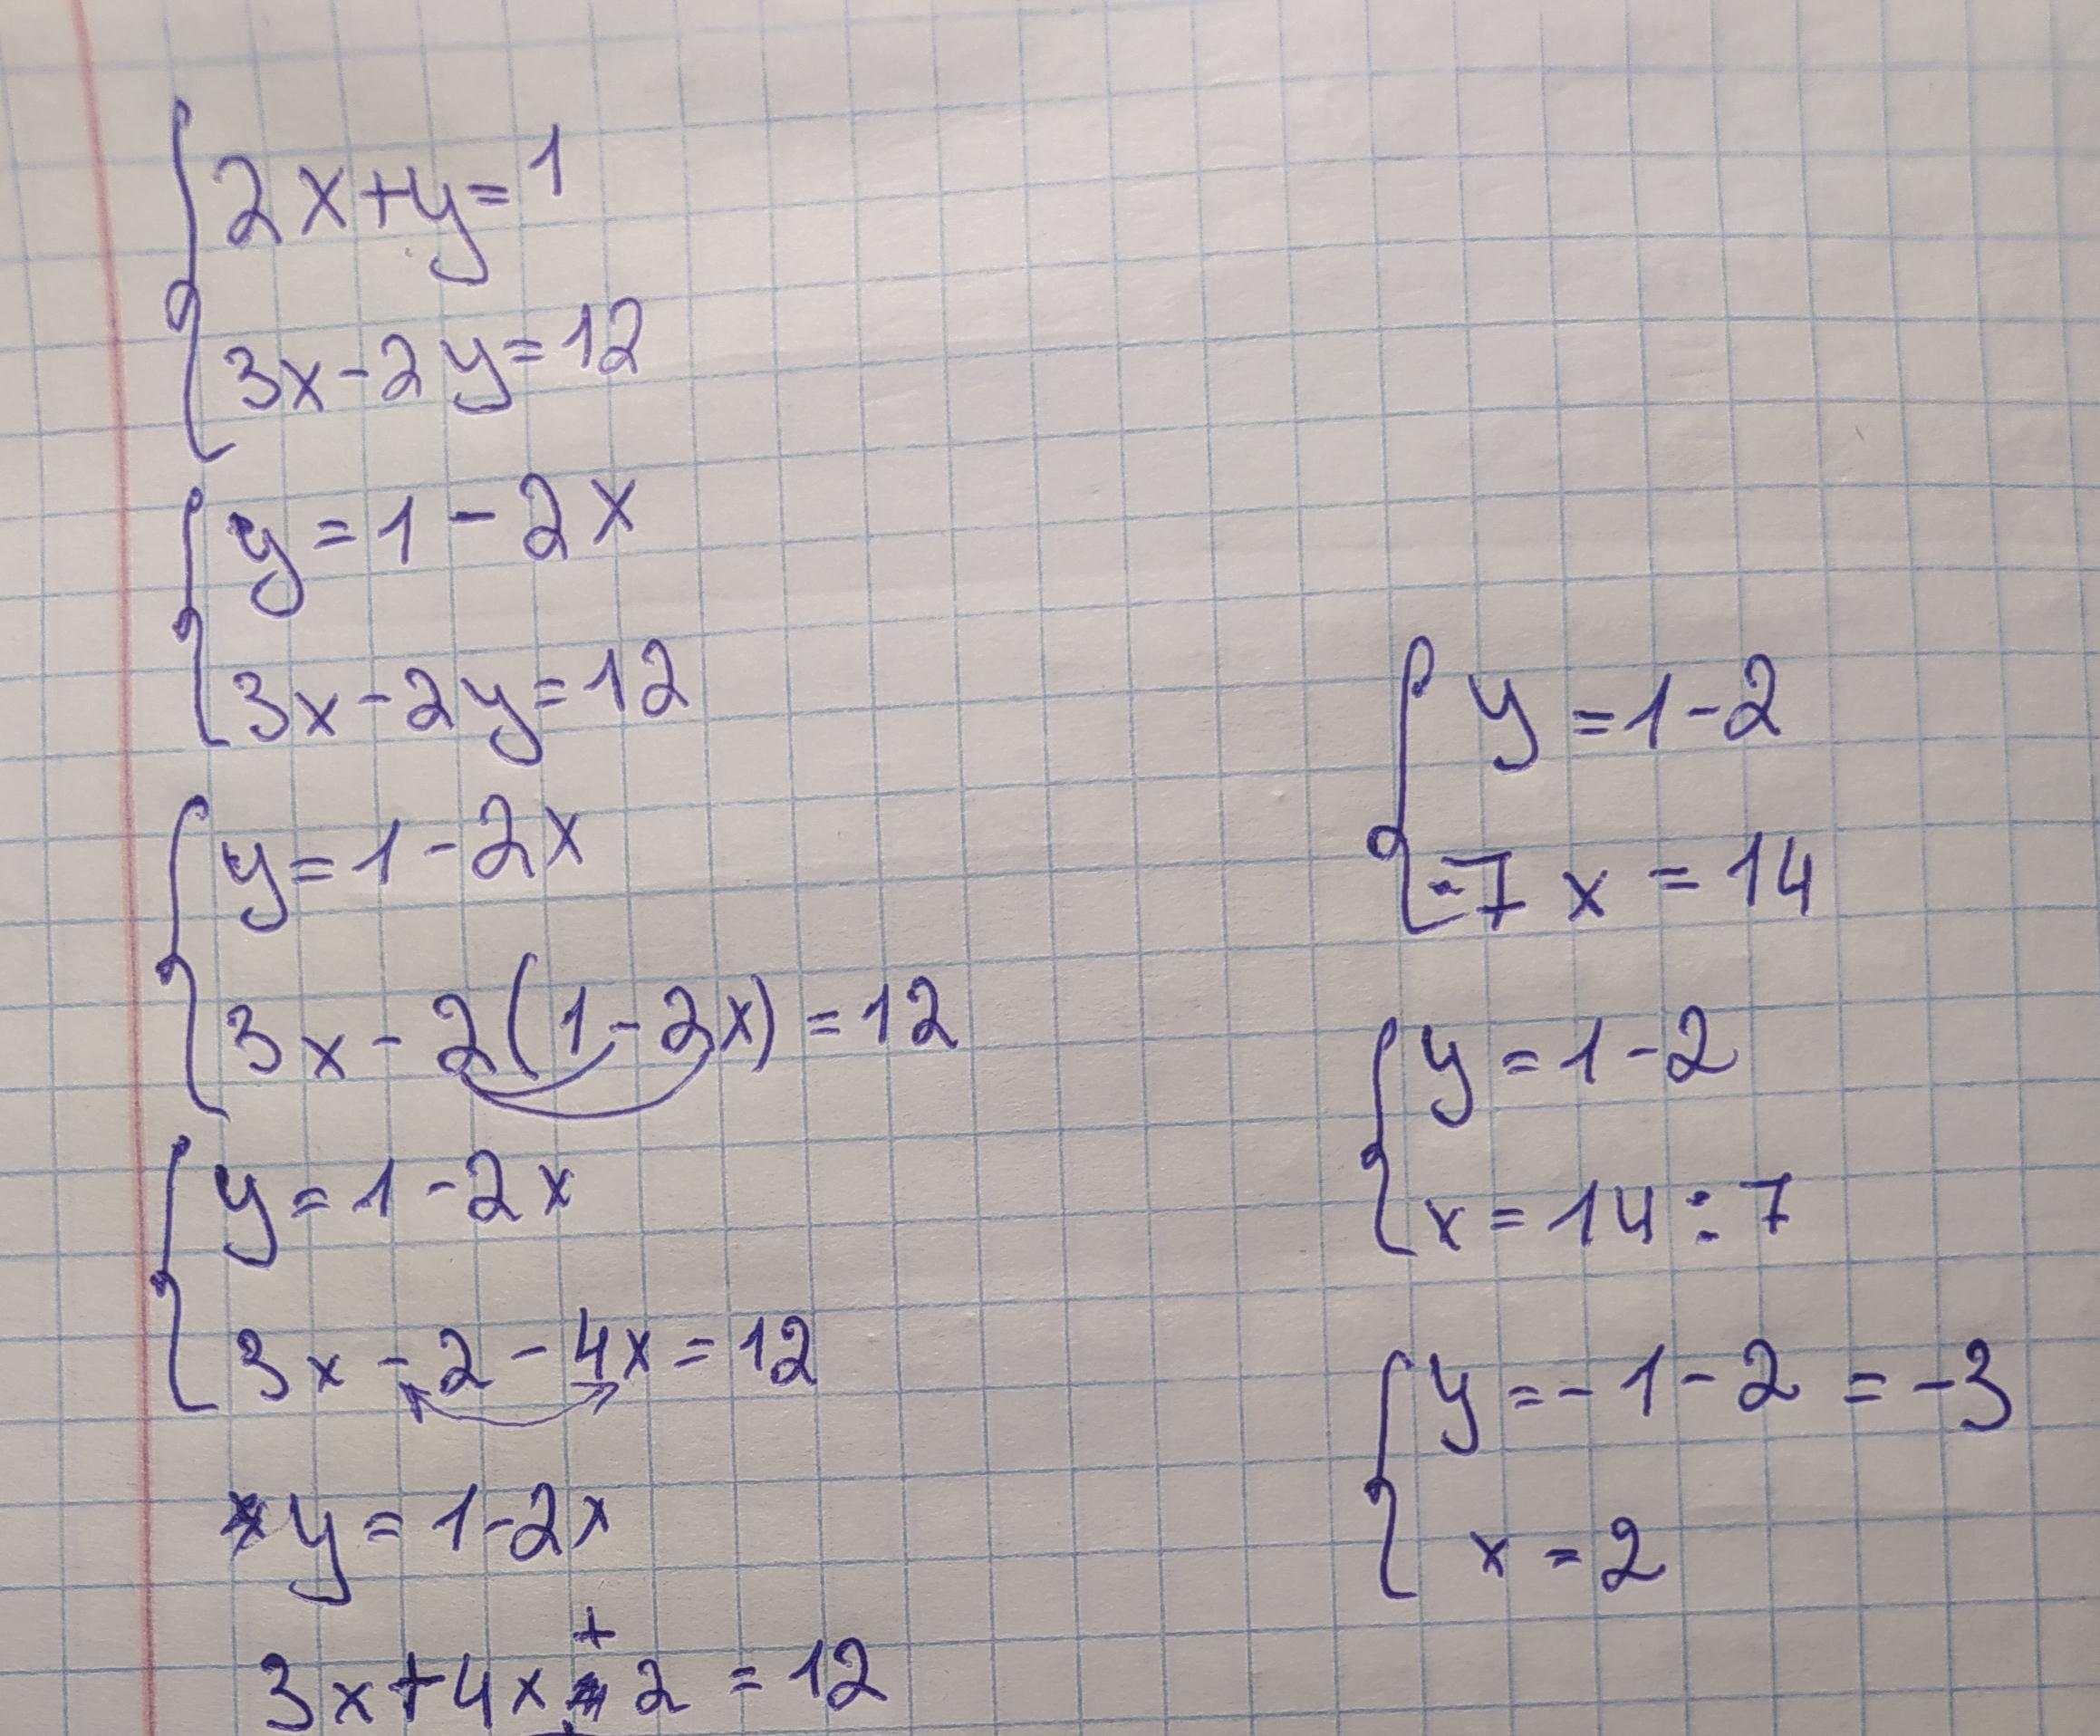 2x+y=1
3x-2y=12
y=1-2x
3x-2y=12
y=1-2x
3x-2(1-2x)=12
y=1-2x
3x-2-4x=12
y=1-2x
+
3x+4x 2=12
y=1-2
-7x=14
y=1-2
x=14:7
y=-1-2=-3
x=2